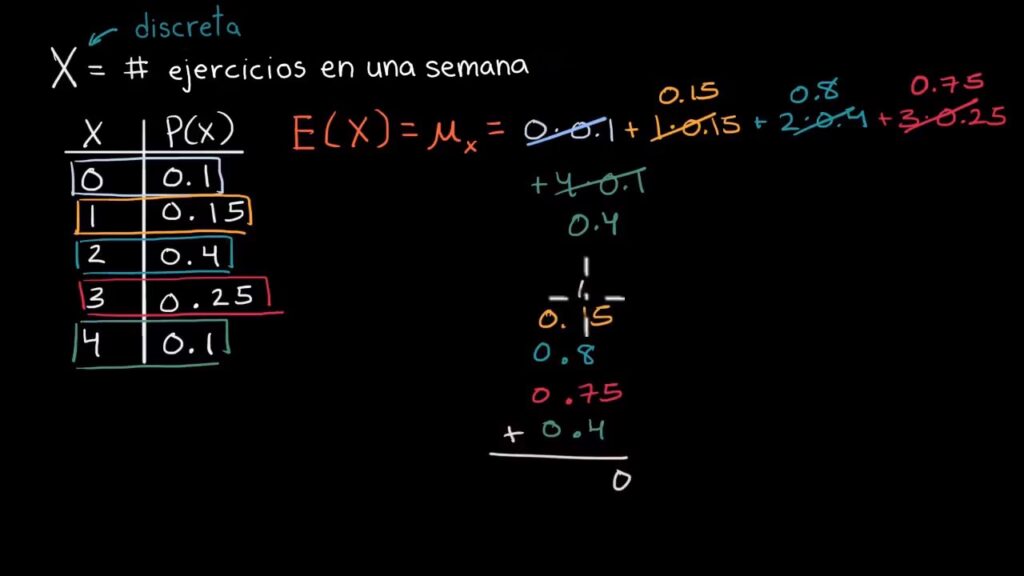 discreta
X = # ejercicios en una semana
X P(X)
0 0.1
1 0.15
2 0.4
3 0.25
4 0.1
0.15 0.8 0.75
E(X) = μx = 0·0.1 + 1·0.15 + 2·0.4 + 3·0.25
+ 4·0.1
0.4
1
0.15
0.8
0.75
+ 0.4
0